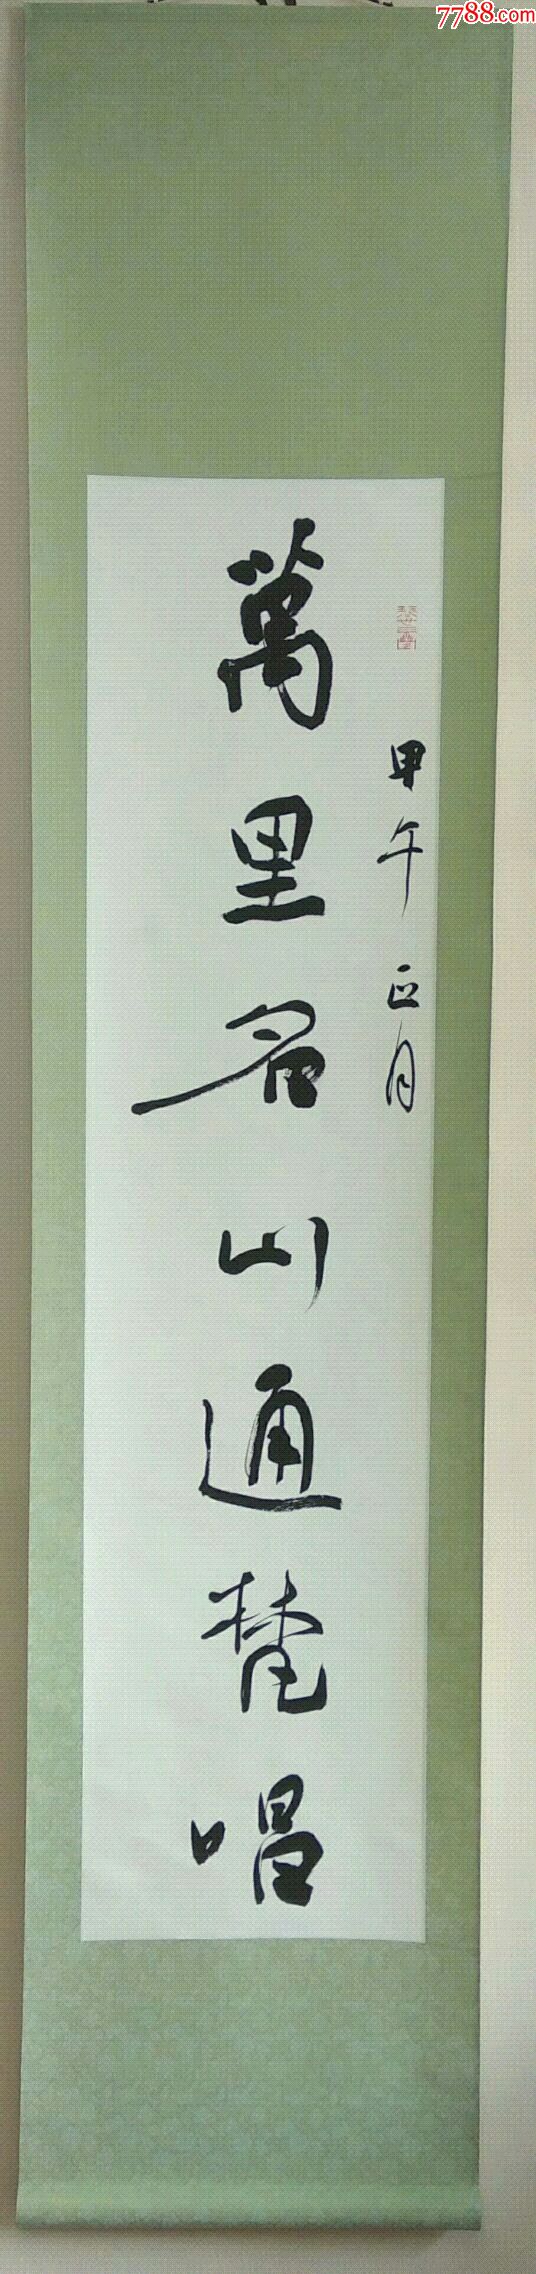 7788.com
甲午正月
萬里名山通梵唱